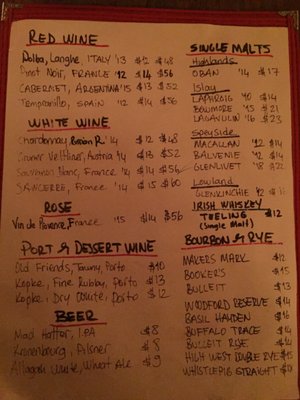 RED WINE
Dolba, Langhe, ITALY '13 $12 $48
Pinot Noir, FRANCE '12 $14 $56
CABERNET, ARGENTINA '15 $13 $52
Tempranillo, SPAIN '12 $14 $56
WHITE WINE
Chardonnay '14 $12 $48
Gruner Veltliner, Austria '14 $13 $52
Sauvignon Blanc, France '14 $56
SANCERRE, France '14 $15 $60
ROSE
Vin de Provence, France '15 $14 $56
PORT & DESSERT WINE
Old Friends, Tawny, Porto $10
Kopke, Fine Rubby, Porto $13
Kopke, Dry White, Porto $12
BEER
Mad Hatter, IPA $8
Kronenbourg, Pilsner $8
Allagash White, Wheat Ale $9
SINGLE MALTS
Highlands
OBAN '14 $17
Islay
LAPHROIG '10 $14
BOWMORE '15 $21
LAGAVULIN '16 $23
Speyside
MACALLAN '12 $14
BALVENIE '12 $14
GLENLIVET '18 $22
Lowland
GLENKINCHIE '12
IRISH WHISKEY
TEELING $12
(Single Malt)
BOURBON & RYE
MAKERS MARK $12
BOOKER'S $15
BULLEIT $13
WOODFORD RESERVE $14
BASIL HAYDEN $16
BUFFALO TRACE $14
BULLEIT RYE $14
HIGH WEST DOUBLE RYE $15
WHISTLEPIG STRAIGHT